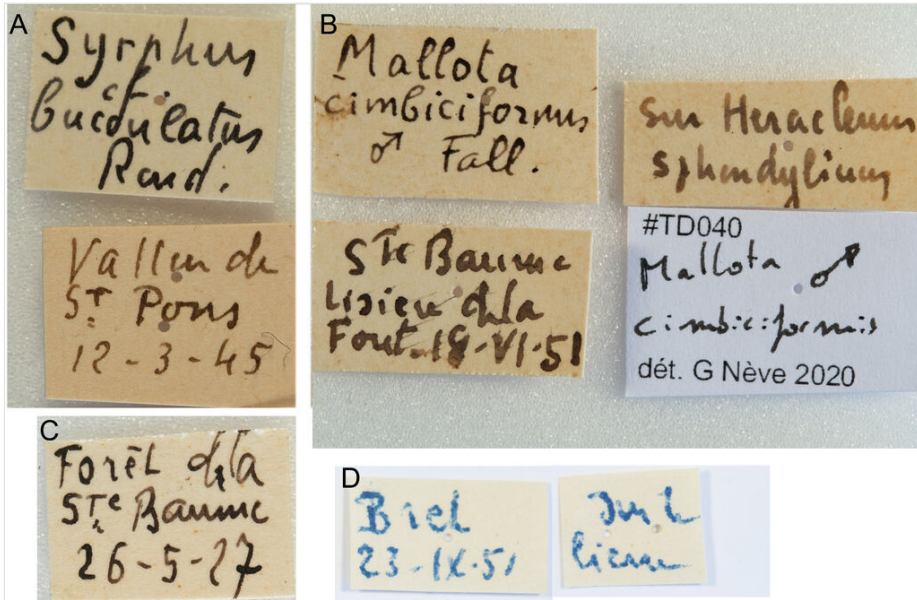 A
Syrphus
cf.
bucculatus
Rond.
Vallon de
St Pons
12-3-45
B
Mallota
cimbiciformis
♂ Fall.
Ste Baume
Lisière d la
Foret. 18-VI-51
Sur Heracleum
sphondylium
#TD040
Mallota ♂
cimbiciformis
dét. G Nève 2020
C
Forêt d la
Ste Baume
26-5-27
D
Biot
23-IX-51
Sur le
lierre